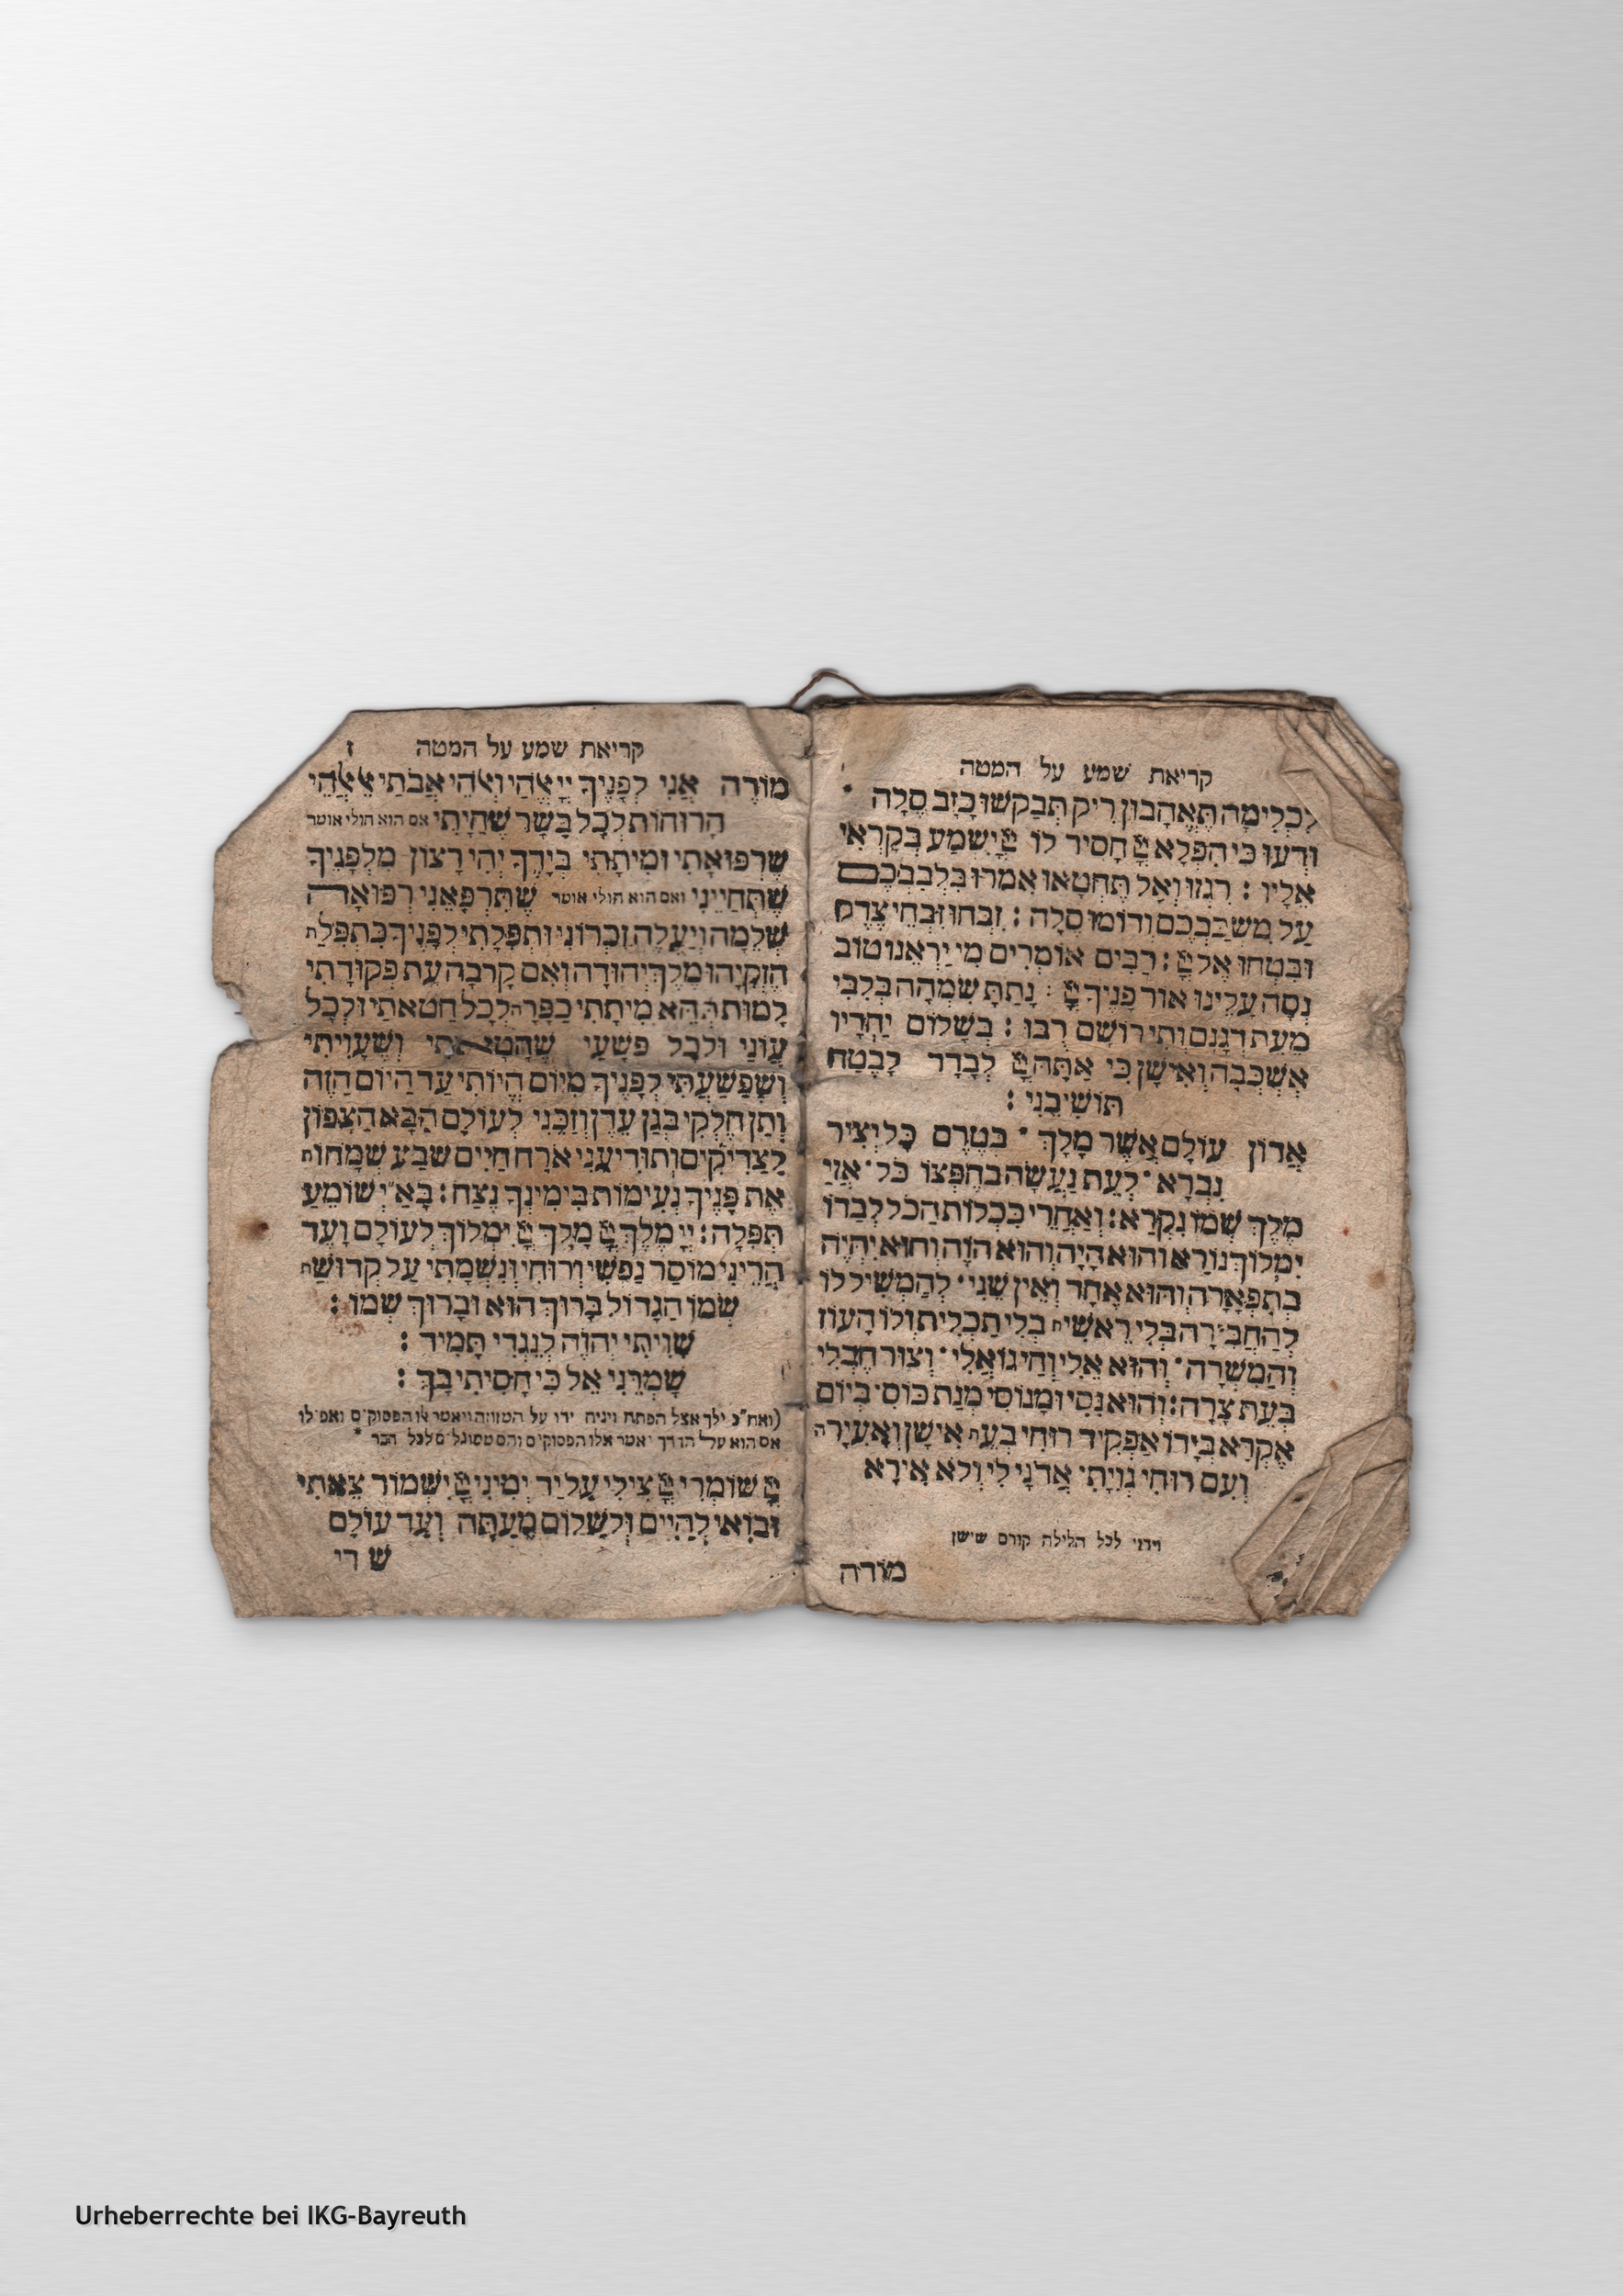 קריאת שמע על המטה
לִכְלִימָה תֶּאֱהָבוּן רִיק תְּבַקְשׁוּ כָזָב סֶלָה
וּדְעוּ כִּי הִפְלָא חָסִיד לוֹ יִשְׁמַע בְּקָרְאִי
אֵלָיו : רִגְזוּ וְאַל תֶּחֱטָאוּ אִמְרוּ בִלְבַבְכֶם
עַל מִשְׁכַּבְכֶם וְדוֹמּוּ סֶלָה : זִבְחוּ זִבְחֵי צֶדֶק
וּבִטְחוּ אֶל : רַבִּים אוֹמְרִים מִי יַרְאֵנוּ טוֹב
נְסָה עָלֵינוּ אוֹר פָּנֶיךָ : נָתַתָּ שִׂמְחָה בְלִבִּי
מֵעֵת דְּגָנָם וְתִירוֹשָׁם רָבּוּ : בְּשָׁלוֹם יַחְדָּיו
אֶשְׁכְּבָה וְאִישָׁן כִּי אַתָּה לְבָדָד לָבֶטַח
תּוֹשִׁיבֵנִי :
אֲדוֹן עוֹלָם אֲשֶׁר מָלַךְ ּ בְּטֶרֶם כָּל יְצִיר
נִבְרָא ּ לְעֵת נַעֲשָׂה בְחֶפְצוֹ כֹּל ּ אֲזַי
מֶלֶךְ שְׁמוֹ נִקְרָא: וְאַחֲרֵי כִּכְלוֹת הַכֹּל לְבַדּוֹ
יִמְלוֹךְ נוֹרָא וְהוּא הָיָה וְהוּא הוֹוֶה וְהוּא יִהְיֶה
בְּתִפְאָרָה וְהוּא אֶחָד וְאֵין שֵׁנִי ּ לְהַמְשִׁיל לוֹ
לְהַחְבִּירָה בְּלִי רֵאשִׁית בְּלִי תַכְלִית וְלוֹ הָעוֹז
וְהַמִּשְׂרָה ּ וְהוּא אֵלִי וְחַי גּוֹאֲלִי ּ וְצוּר חֶבְלִי
בְּעֵת צָרָה: וְהוּא נִסִּי וּמָנוֹסִי מְנָת כּוֹסִי בְּיוֹם
אֶקְרָא בְּיָדוֹ אַפְקִיד רוּחִי בְּעֵת אִישָׁן וְאָעִירָה
וְעִם רוּחִי גְּוִיָּתִי אֲדֹנָי לִי וְלֹא אִירָא
וידוי לכל הלילה קודם שישן
מוֹדה
קריאת שמע על המטה ז
מוֹדֶה אֲנִי לְפָנֶיךָ יְיָ אֱלֹהַי וֵאלֹהֵי אֲבֹתַי אֱלֹהֵי
הָרוּחוֹת לְכָל בָּשָׂר שֶׁחָיִתִי אם הוא חולי אומר
שֶׁרְפוּאָתִי וּמִיתָתִי בְּיָדֶךָ יְהִי רָצוֹן מִלְפָנֶיךָ
שֶׁתְּחַיֵינִי ואם הוא חולי אומר שֶׁתִּרְפָּאֵנִי רְפוּאָה
שְׁלֵמָה וְיַעֲלֶה זִכְרוֹנִי וּתְפִלָּתִי לְפָנֶיךָ כִּתְפִלַּת
חִזְקִיָּהוּ מֶלֶךְ יְהוּדָה וְאִם קָרְבָה עֵת פְּקוּדָתִי
לָמוּת תְּהֵא מִיתָתִי כַפָּרָה לְכָל חַטֹּאתַי וּלְכָל
עֲוֹנַי וּלְכָל פְּשָׁעַי וְשֶׁעָוִיתִי
וְשֶׁפָּשַׁעְתִּי לְפָנֶיךָ מִיּוֹם הֱיוֹתִי עַד הַיּוֹם הַזֶּה
וְתֵן חֶלְקִי בְּגַן עֵדֶן וְזַכֵּנִי לָעוֹלָם הַבָּא הַצָּפוּן
לַצַּדִּיקִים וְתוֹדִיעֵנִי אֹרַח חַיִּים שֹׂבַע שְׂמָחוֹת
אֶת פָּנֶיךָ נְעִימוֹת בִּימִינְךָ נֶצַח: בָּא"יְ שׁוֹמֵעַ
תְּפִלָּה: יְיָ מֶלֶךְ מָלָךְ יִמְלוֹךְ לְעוֹלָם וָעֶד
הֲרֵינִי מוֹסֵר נַפְשִׁי וְרוּחִי וְנִשְׁמָתִי עַל קְדוּשַּׁת
שְׁמוֹ הַגָּדוֹל בָּרוּךְ הוּא וּבָרוּךְ שְׁמוֹ :
שִׁוִּיתִי יְהוָֹה לְנֶגְדִּי תָּמִיד :
שָׁמְרֵנִי אֵל כִּי חָסִיתִי בָךְ :
(ואח"כ ילך אצל הפתח ויניח ידו על המזוזה ויאמר אלו הפסוקים ואפילו
אם הוא על הדרך יאמר אלו הפסוקים והם מסוגלים לכל דבר
שׁוֹמְרִי צִילִי עַל יַד יְמִינִי יִשְׁמוֹר צֵאתִי
וּבוֹאִי לְחַיִּים וּלְשָׁלוֹם מֵעַתָּה וְעַד עוֹלָם
שַׁ דַי
Urheberrechte bei IKG-Bayreuth